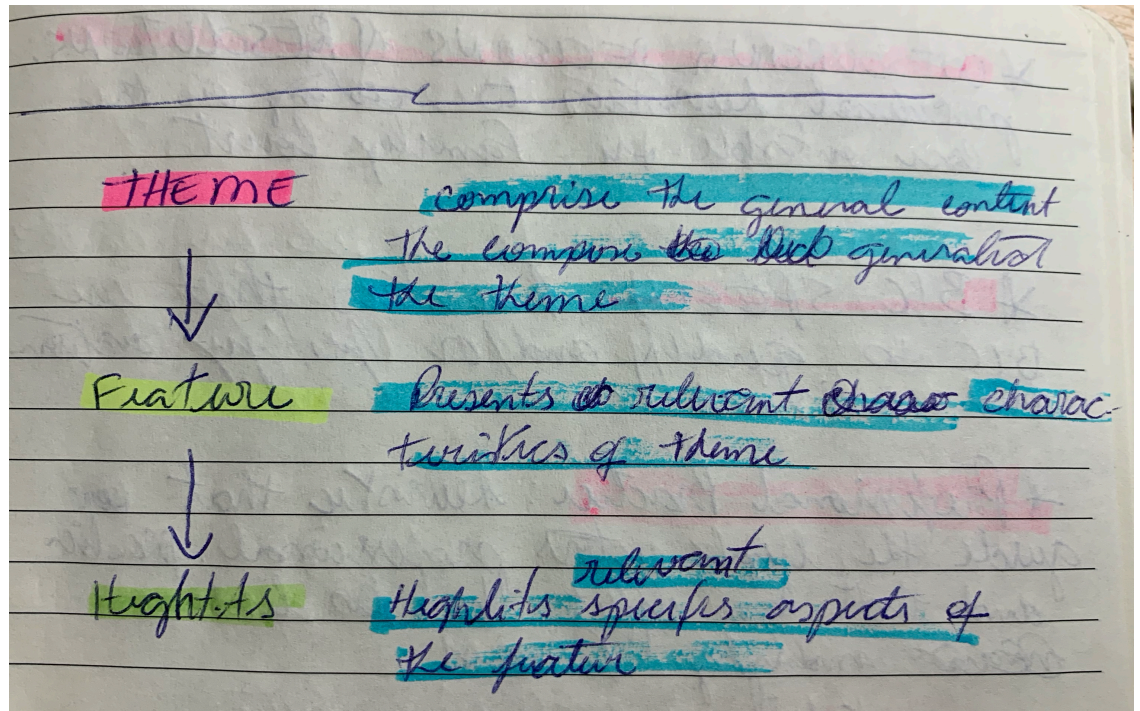 THEME comprise the general content
the compose generalist
the theme
Feature Presents relevant charac-
teristics of theme
relevant
Hightts Highlits specifis aspects of
the featur